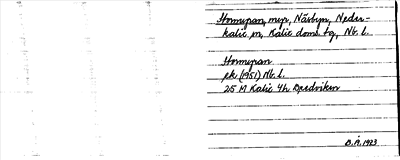 Hornsjöan, myr, Näsbyn, Neder-
kalix sn, Kalix doms. tg, Nb. l.
Hornsjöan
ek (1951) Nb. l.
25 M Kalix 4h Bredviken
B. Å. 1973